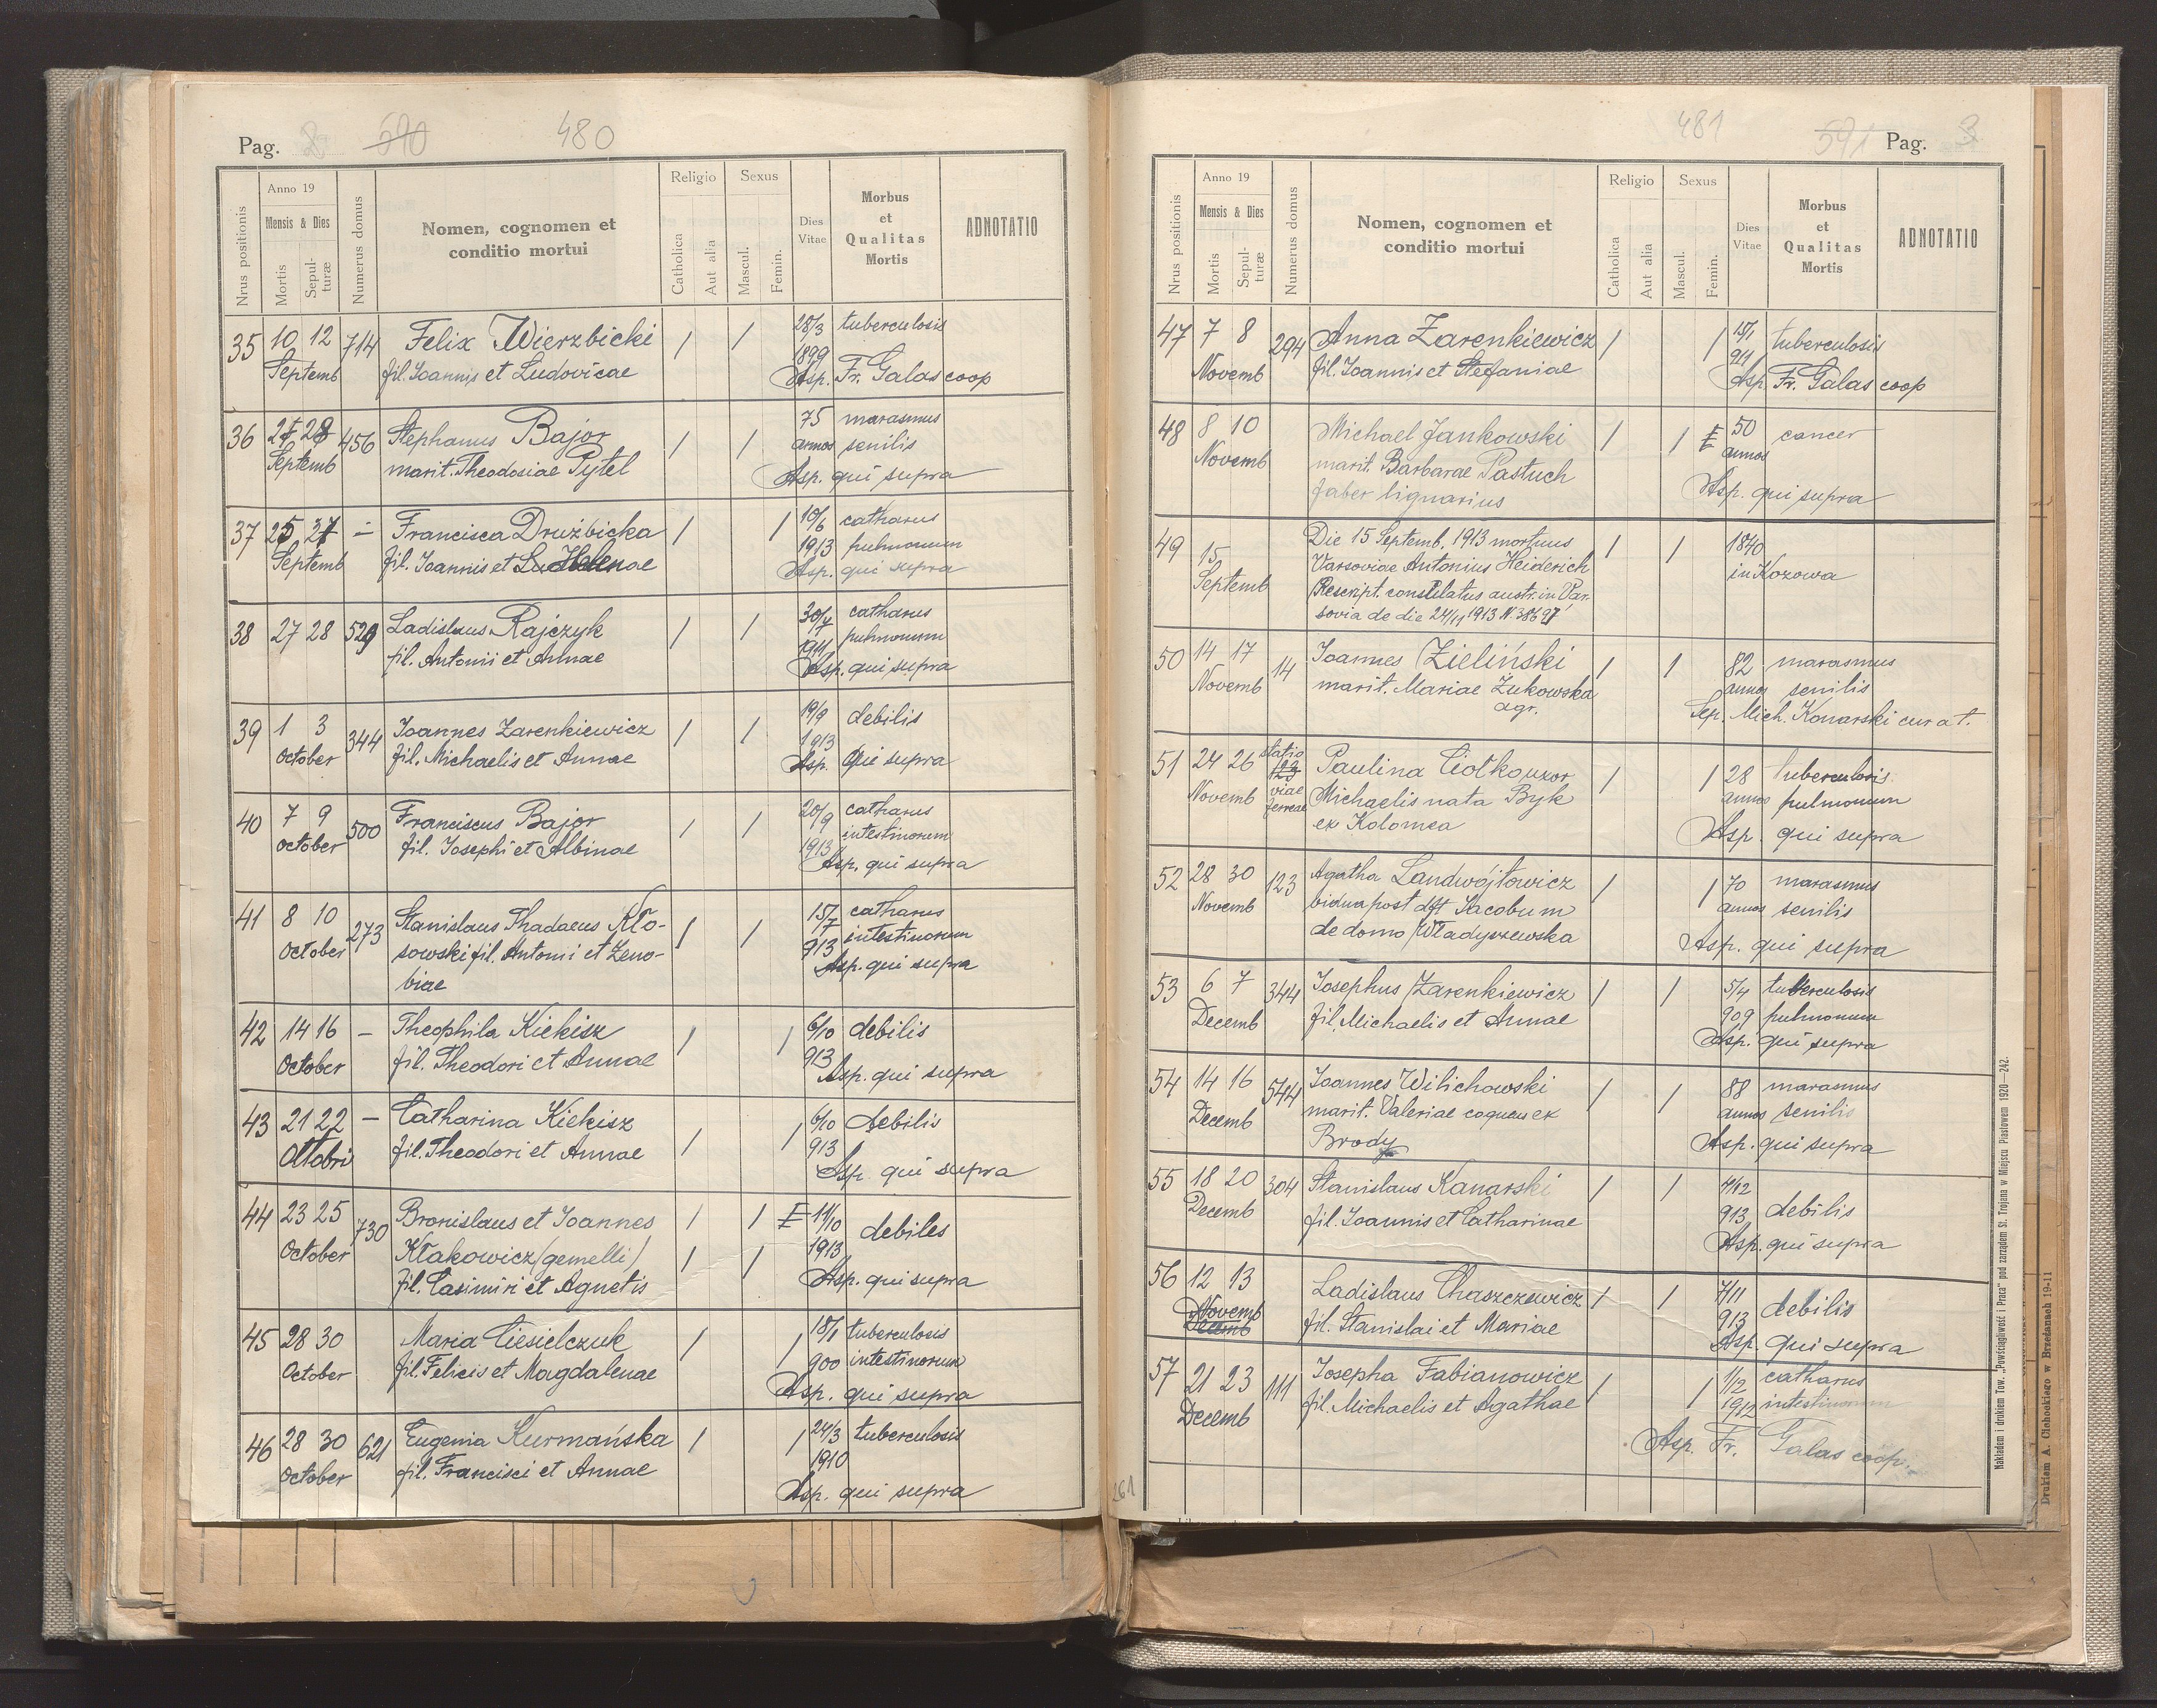 Pag.
590
480
Nrus positionis
Anno 19
Mensis & Dies
Mortis
Sepul-
turæ
Numerus domus
Nomen, cognomen et
conditio mortui
Religio
Catholica
Aut alia
Sexus
Mascul.
Femin.
Dies
Vitae
Morbus
et
Qualitas
Mortis
ADNOTATIO
35 10 12 714 Felix Wierzbicki / / 28/3 tuberculosis
Septemb fil. Joannis et Ludovicae 1899
Asp. Fr. Galas coop
36 27 28 456 Stephanus Bajor / / 75 marasmus
Septemb marit. Theodosiae Pytel annos senilis
Asp. qui supra
37 25 27 – Francisca Drużbicka / / 10/6 catharus
Septemb fil. Joannis et Helenae 1913 pulmonum
Asp. qui supra
38 27 28 529 Ladislaus Rajczyk / / 30/7 catharus
fil. Antonii et Annae 1911 pulmonum
Asp. qui supra
39 1 3 344 Joannes Zarenkiewicz / / 19/9 debilis
October fil. Michaelis et Annae 1913
Asp. qui supra
40 7 9 500 Franciscus Bajor / / 20/9 catharus
October fil. Josephi et Albinae 1913 intestinorum
Asp. qui supra
41 8 10 273 Stanislaus Thadaeus Kło- / / 15/7 catharus
October sowski fil. Antoni et Zeno- 913 intestinorum
biae Asp. qui supra
42 14 16 – Theophila Kiekisz / / 6/10 debilis
October fil. Theodori et Annae 913
Asp. qui supra
43 21 22 – Catharina Kiekisz / / 6/10 debilis
Ottobri fil. Theodori et Annae 913
Asp. qui supra
44 23 25 730 Bronislaus et Joannes / / 11/10 debiles
October Kłakowicz (gemelli) / / 1913
fil. Casimiri et Agnetis Asp. qui supra
45 28 30 Maria Ciesielczuk / / 18/1 tuberculosis
October fil. Felicis et Magdalenae 900 intestinorum
Asp. qui supra
46 28 30 621 Eugenia Kurmańska / / 24/3 tuberculosis
October fil. Francisci et Annae 1910
Asp. qui supra
481
591
Pag. 3
Nrus positionis
Anno 19
Mensis & Dies
Mortis
Sepul-
turæ
Numerus domus
Nomen, cognomen et
conditio mortui
Religio
Catholica
Aut alia
Sexus
Mascul.
Femin.
Dies
Vitae
Morbus
et
Qualitas
Mortis
ADNOTATIO
47 7 8 294 Anna Zarenkiewicz / / 15/1 tuberculosis
Novemb fil. Joannis et Stefaniae 911
Asp. Fr. Galas coop
48 8 10 Michael Jankowski / / 50 cancer
Novemb marit. Barbarae Pastuch annos
faber lignarius Asp. qui supra
49 15 Die 15 Septemb. 1913 mortuus / / 1840
Septemb Varsoviae Antonius Heiderich in Kozowa
Rescript. consulatus austr. in Var-
sovia de die 24/11 1913 N 38697
50 14 17 14 Joannes Zieliński / / 82 marasmus
Novemb marit. Mariae Żukowska annos senilis
agr. Sep. Mich. Konarski curat.
51 24 26 statio Paulina Ciołko uxor / / 28 tuberculosis
Novemb 123 viae ferreae Michaelis nata Byk annos pulmonum
ex Kolomea Asp. qui supra
52 28 30 123 Agatha Landwójtowicz / / 70 marasmus
Novemb vidua post dft Jacobum annos senilis
de domo Władyszewska Asp. qui supra
53 6 7 344 Josephus Zarenkiewicz / / 5/4 tuberculosis
Decemb fil. Michaelis et Annae 909 pulmonum
Asp. qui supra
54 14 16 544 Joannes Wilichowski / / 88 marasmus
Decemb marit. Valeriae coqueus ex annos senilis
Brody Asp. qui supra
55 18 20 304 Stanislaus Kanarski / / 7/12
Decemb fil. Joannis et Catharinae 913 debilis
Asp. qui supra
56 12 13 Ladislaus Chaszczewicz / / 7/11
Novemb fil. Stanislai et Mariae 913 debilis
Decemb Asp. qui supra
57 21 23 111 Josepha Fabianowicz / / 1/12 catharus
Decemb fil. Michaelis et Agathae 1912 intestinorum
Asp. Fr. Galas coop.
261
Nakładem i drukiem Tow. „Powściągliwość i Praca" pod zarządem St. Trojana w Miejscu Piastowem 1920—242.
Drukiem A. Cichockiego w Brzeżanach 19-11